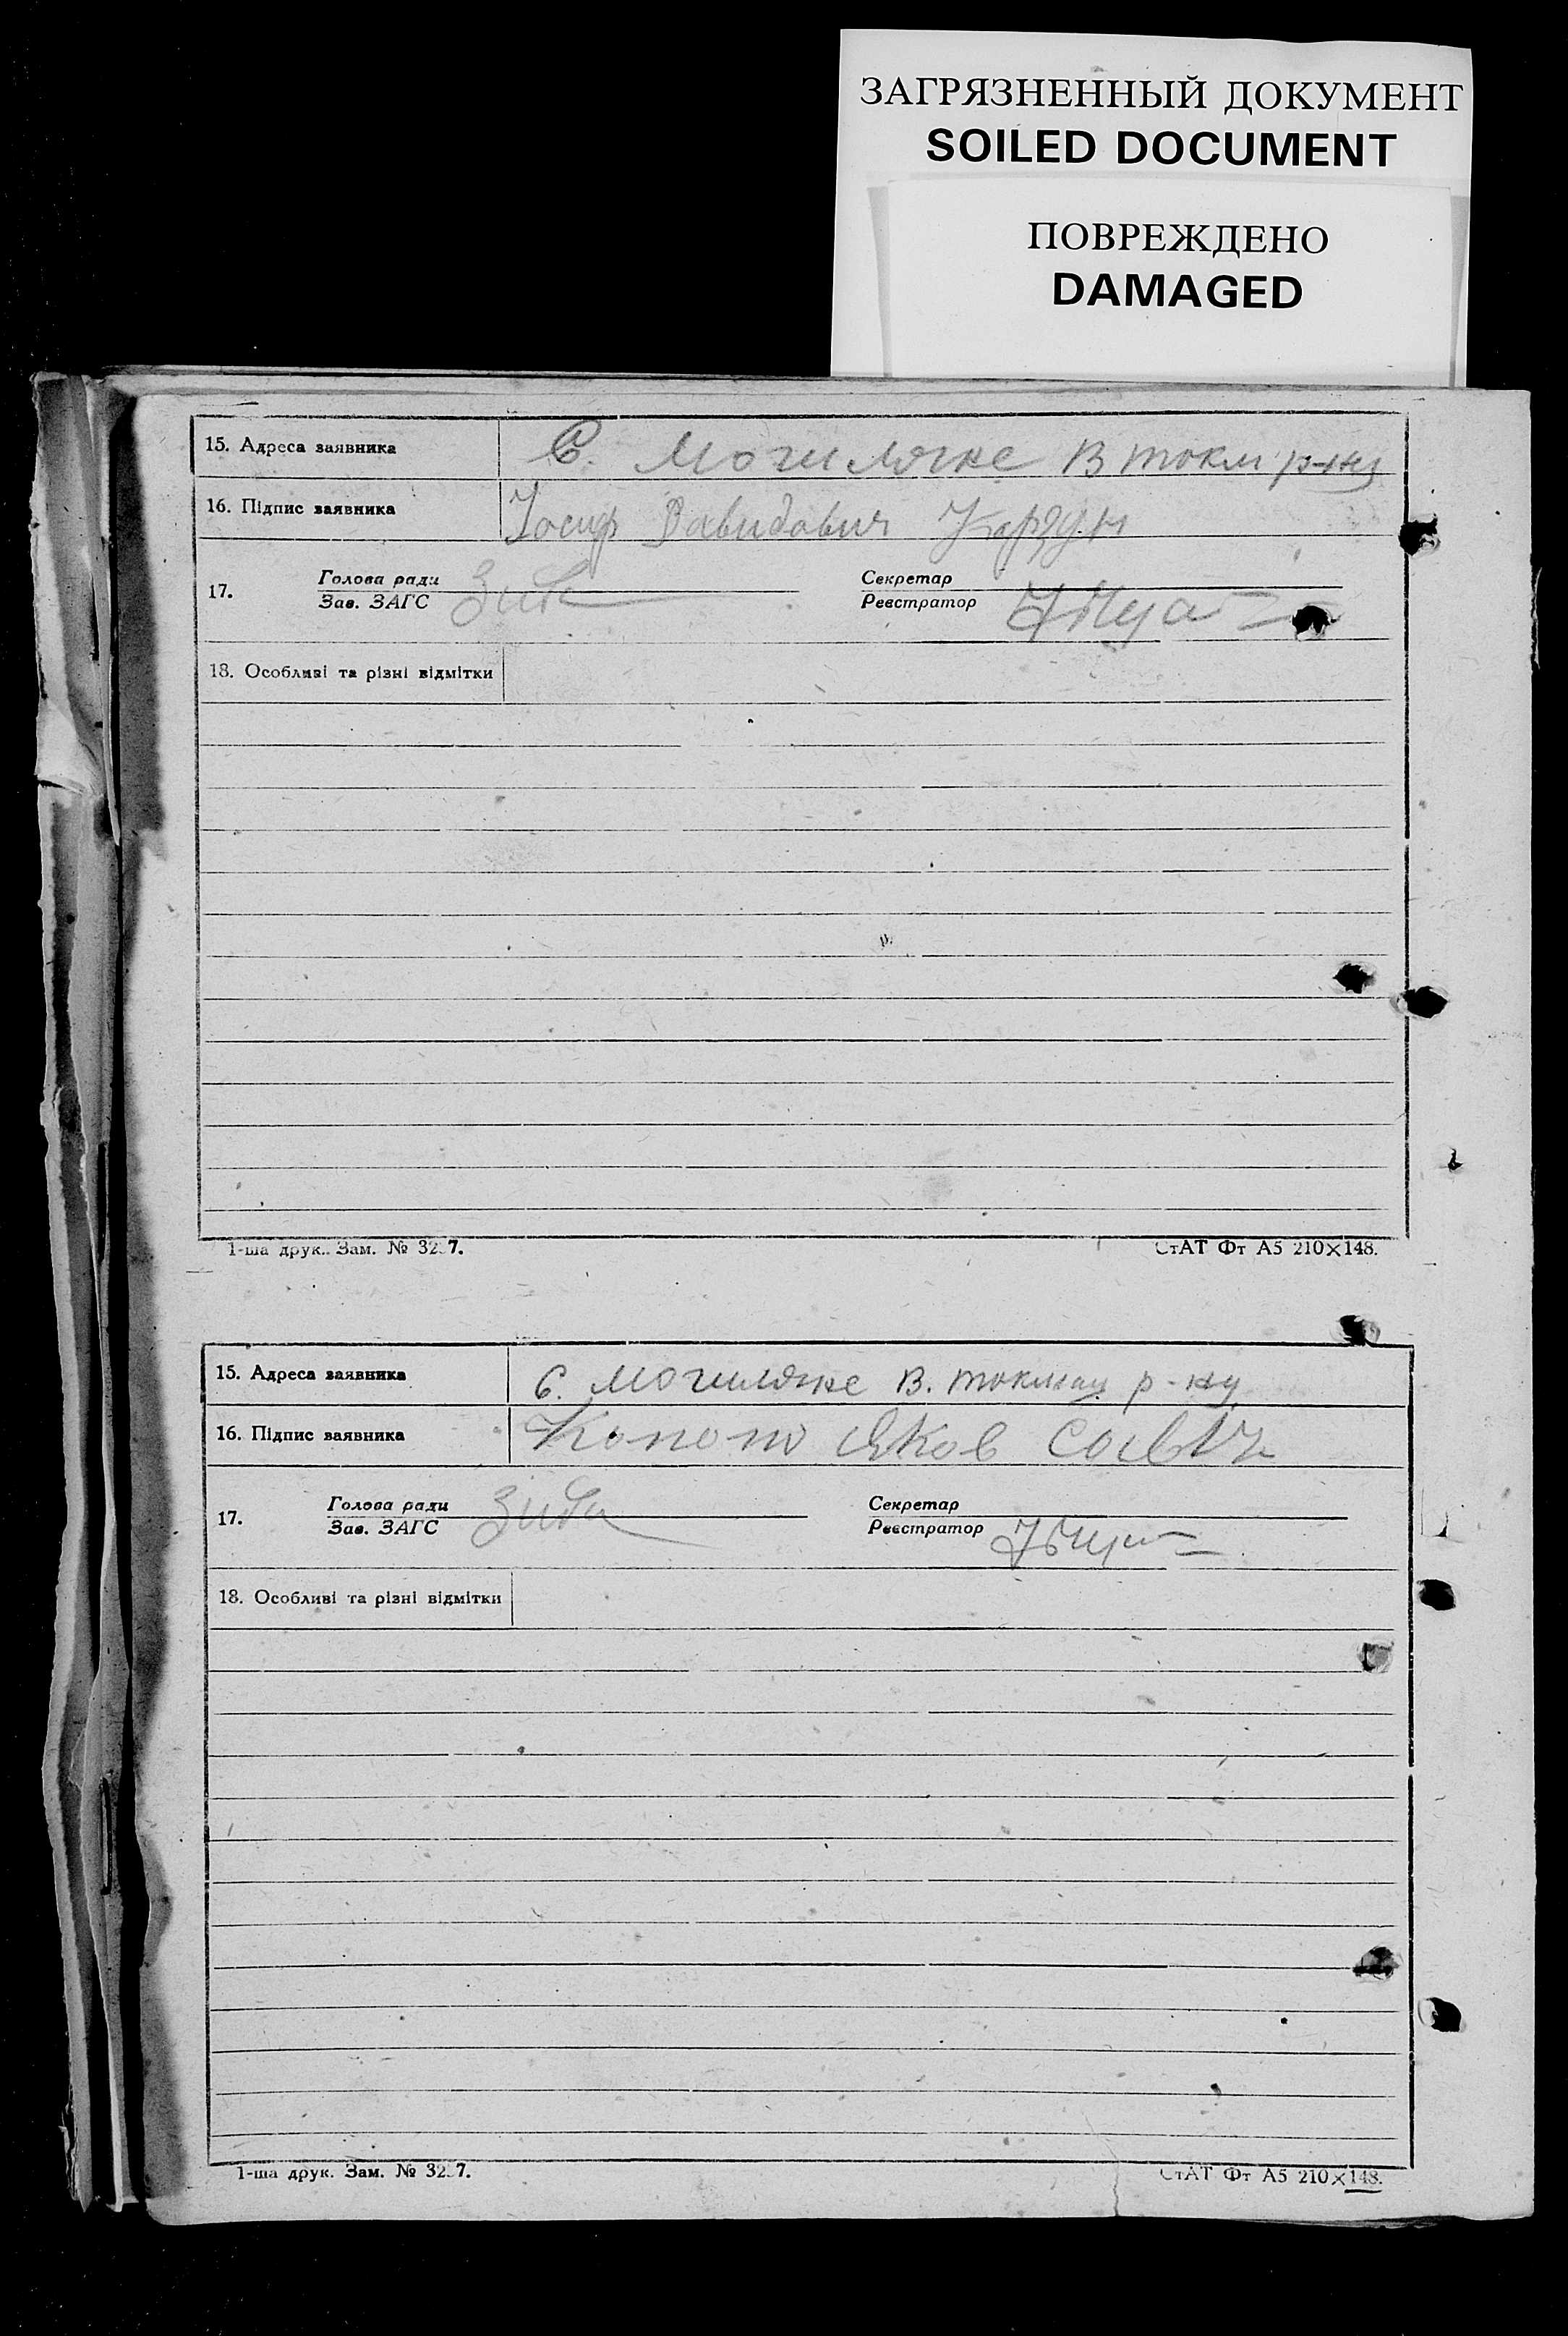 ЗАГРЯЗНЕННЫЙ ДОКУМЕНТ
SOILED DOCUMENT
ПОВРЕЖДЕНО
DAMAGED
15. Адреса заявника С. Могиляне В токм р-ну
16. Підпис заявника Йосиф Давидович
17. Голова ради Секретар
Зав. ЗАГС Реєстратор
18. Особливі та різні відмітки
1-ша друк. Зам. № СтАТ Фт А5 210×148.
15. Адреса заявника С. Могиляне В. токмац р-ну
16. Підпис заявника Копот Яков
17. Голова ради Секретар
Зав. ЗАГС Реєстратор
18. Особливі та різні відмітки
1-ша друк. Зам. № СтАТ Фт А5 210×148.